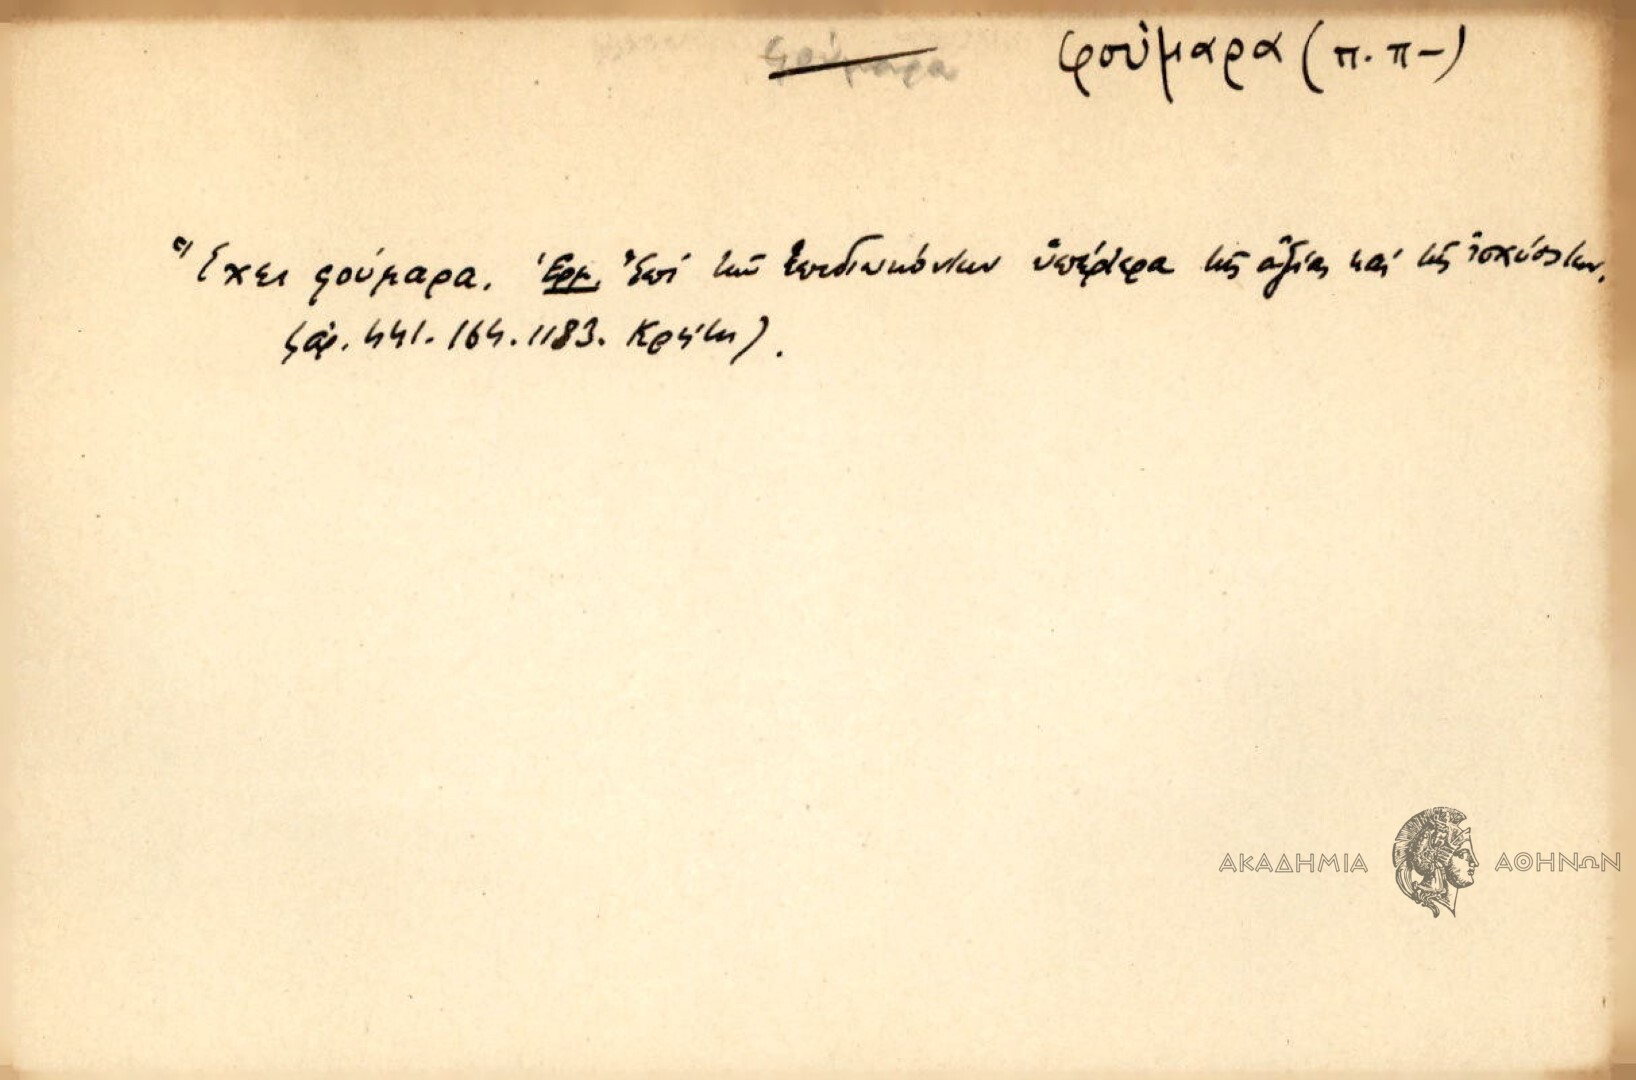 φούμαρα (π. π-)
Ἔχει φούμαρα. Ἑρμ. Ἐπί τῶν ἐπιδιωκόντων ὑπέρτερα τῆς ἀξίας καί τῆς ἰσχύος των.
(ἀρ. 441. 164. 1183. Κρήτη).
ΑΚΑΔΗΜΙΑ ΑΘΗΝΩΝ